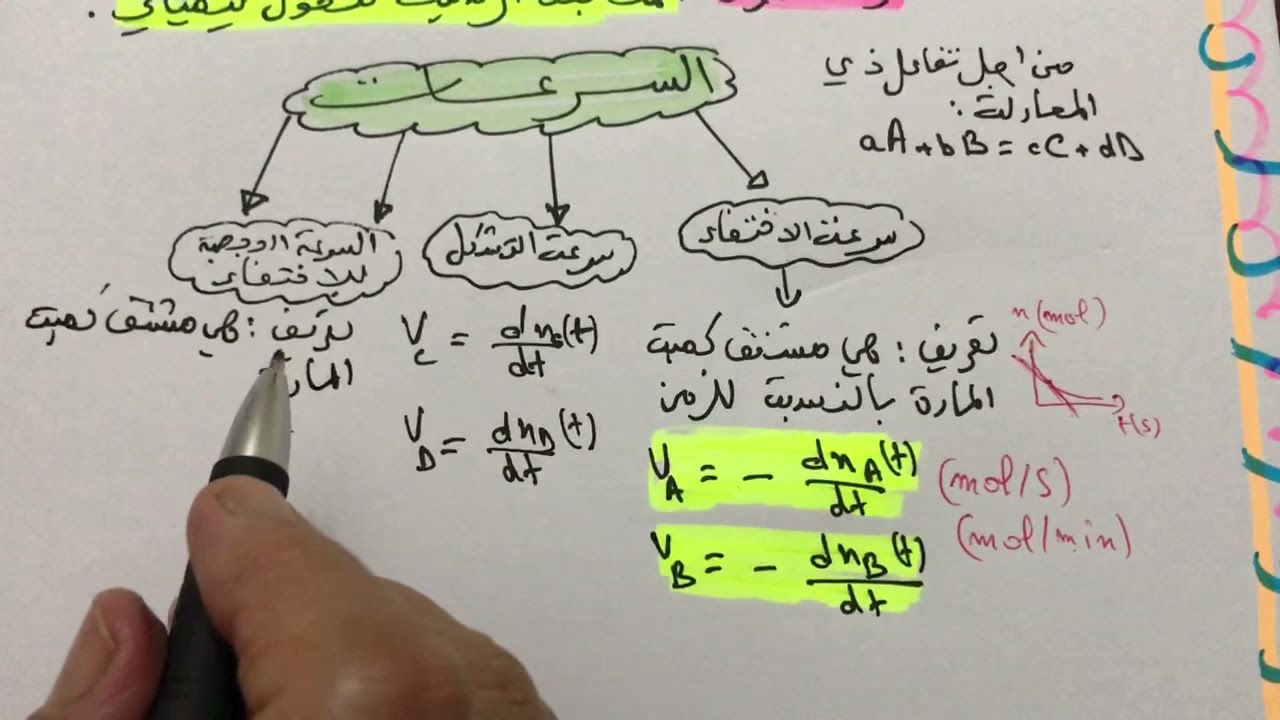 المتابعة الزمنية لتحول كيميائي .
من اجل تفاعل ذي
المعادلة :
aA + bB = cC + dD
السرعات
سرعة الاختفاء
سرعة التشكل
السرعة الحجمية
للاختفاء
تعريف : هي مشتق كمية
المادة بالنسبة للزمن
n(mol)
t(s)
V_A = - dn_A(t)/dt
(mol/s)
(mol/min)
V_B = - dn_B(t)/dt
V_C = dn_C(t)/dt
V_D = dn_D(t)/dt
تعريف : هي مشتق كمية
المادة